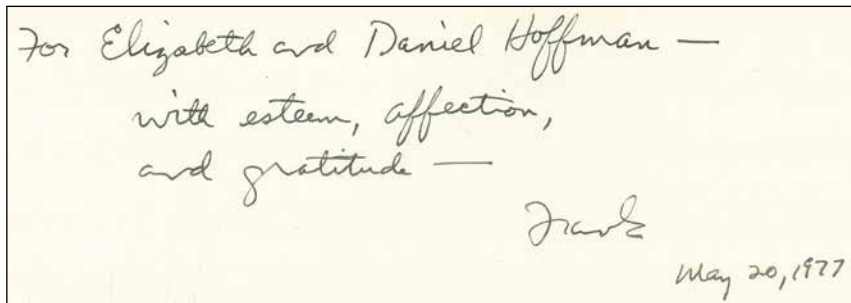 For Elizabeth and Daniel Hoffman —
with esteem, affection,
and gratitude —
Frank
May 20, 1977